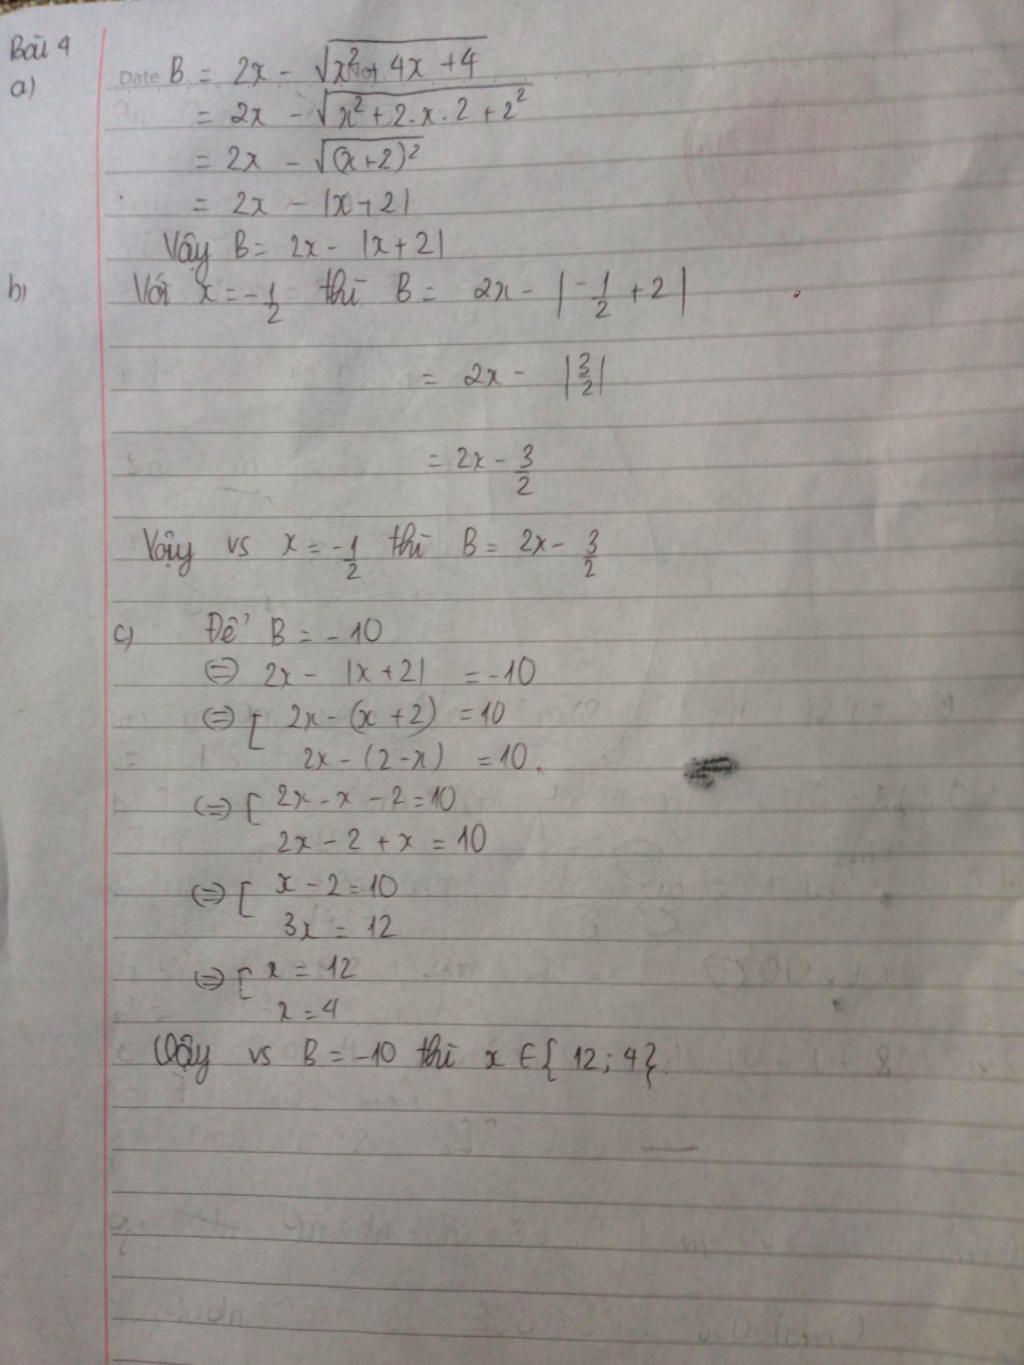 Bài 4
a) Date No. B = 2x - √(x² + 4x + 4)
= 2x - √(x² + 2.x.2 + 2²)
= 2x - √((x+2)²)
= 2x - |x+2|
Vậy B = 2x - |x+2|
b) Với x = -1/2 thì B = 2x - |-1/2 + 2|
= 2x - |3/2|
= 2x - 3/2
Vậy vs x = -1/2 thì B = 2x - 3/2
c) Để B = -10
⇔ 2x - |x+2| = -10
⇔ [ 2x - (x+2) = 10
2x - (2-x) = 10.
⇔ [ 2x - x - 2 = 10
2x - 2 + x = 10
⇔ [ x - 2 = 10
3x = 12
⇔ [ x = 12
x = 4
Vậy vs B = -10 thì x ∈ {12; 4}